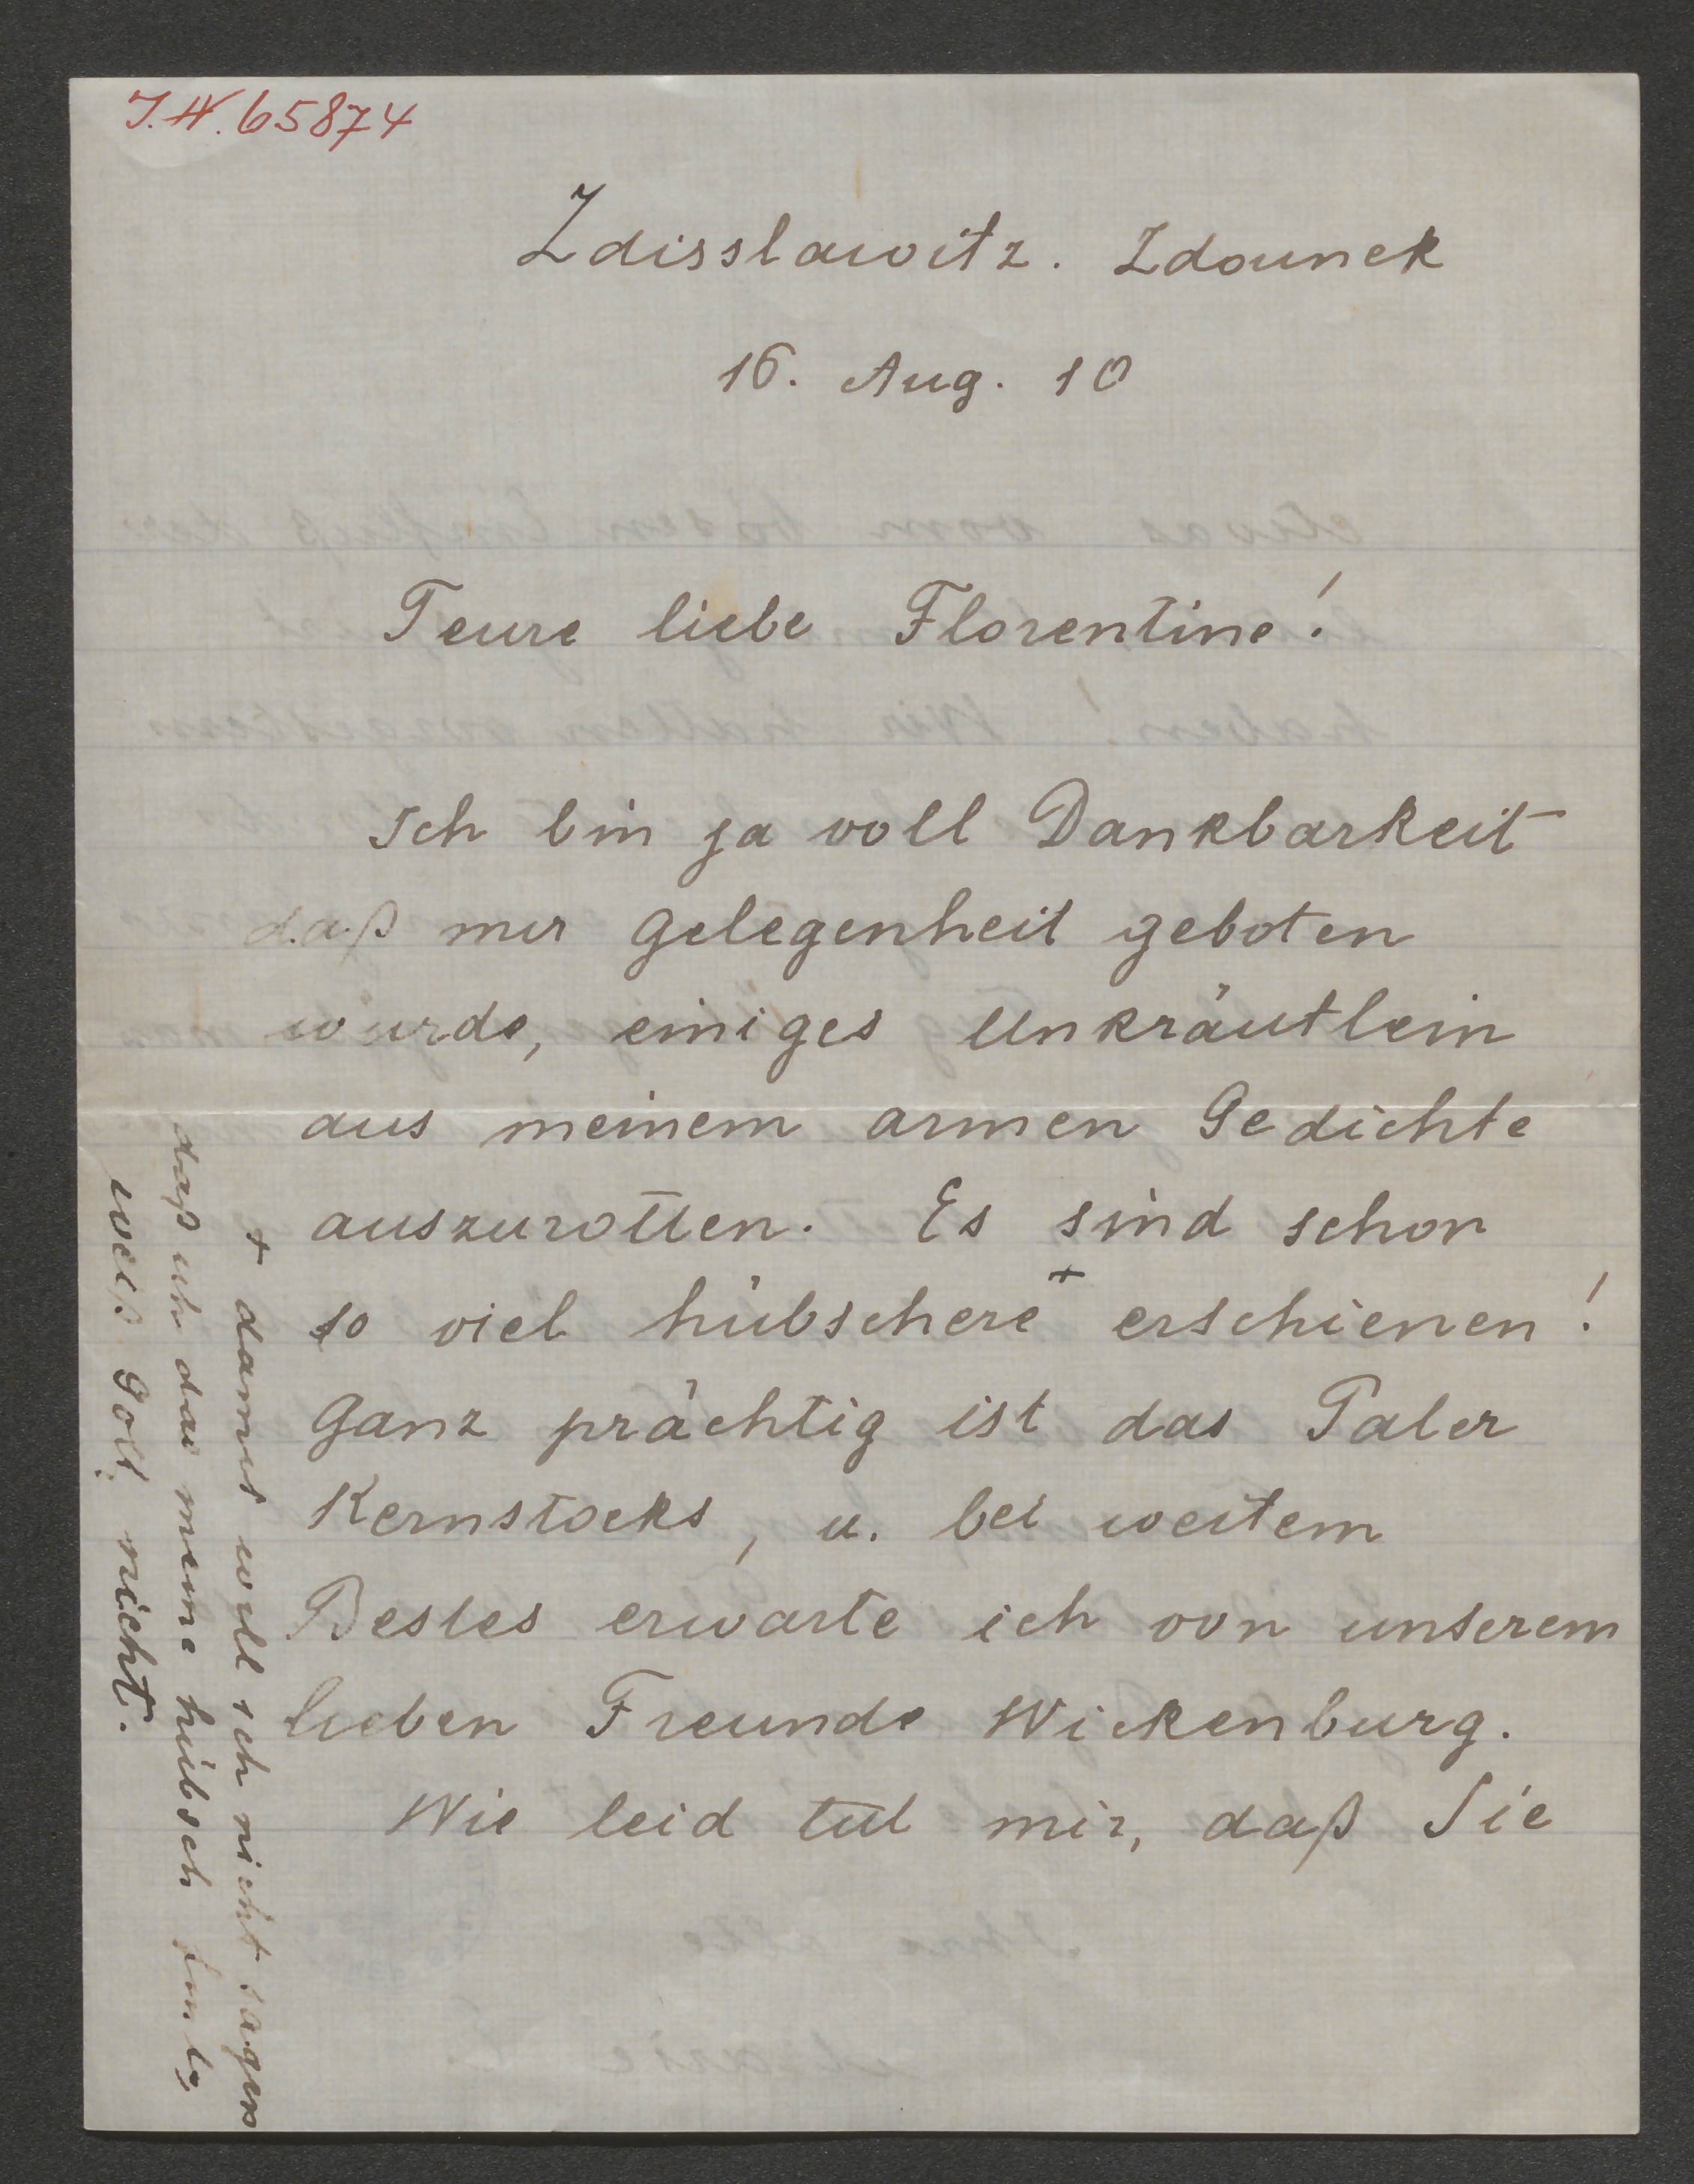 J.N. 65874
Zdisslawitz. Zdounek
16. Aug. 10
Teure liebe Florentine!
Ich bin ja voll Dankbarkeit
daß mir Gelegenheit geboten
wurde, einiges Unkräutlein
aus meinem armen Gedichte
auszurotten. Es sind schon
so viel hübschere + erschienen!
Ganz prächtig ist das Paler
Kernstocks, u. bei weitem
Bestes erwarte ich von unserem
lieben Freunde Wickenburg.
Wie leid tut mir, daß Sie
+ damit will ich nicht sagen
daß ich das meine hübsch finde,
weiß Gott nicht.